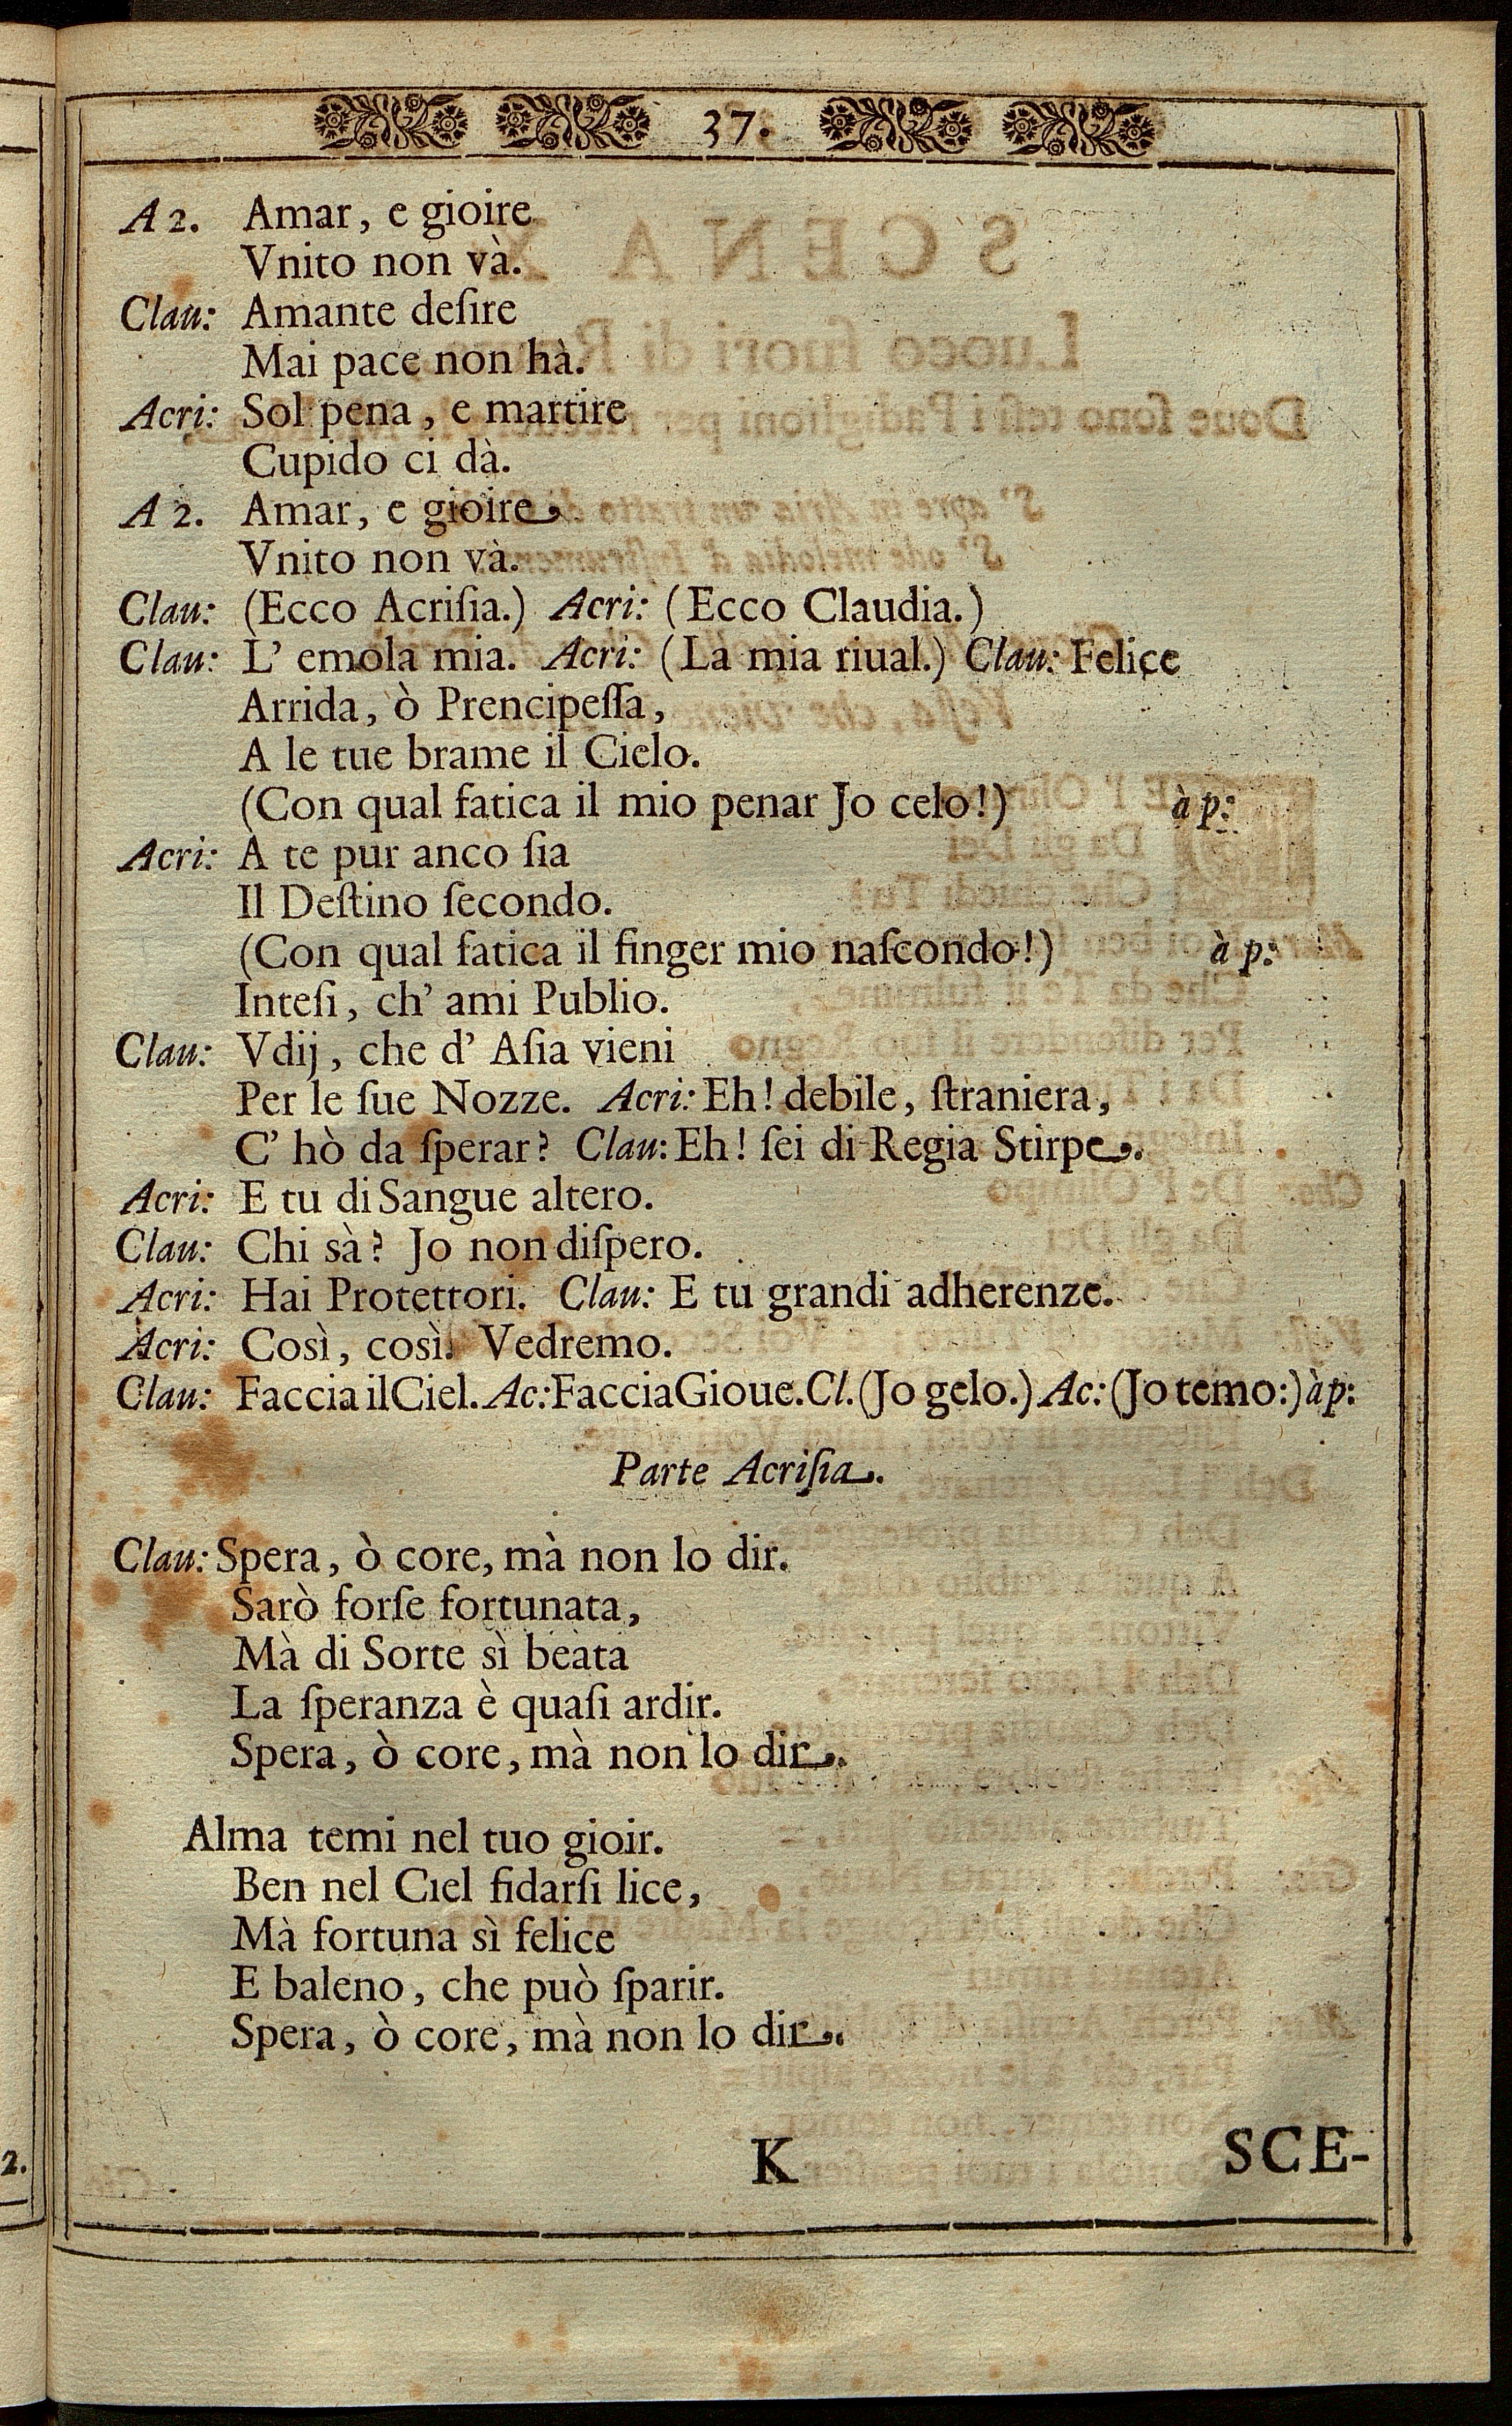 37.
A 2. Amar, e gioire
Vnito non và.
Clau: Amante deſire
Mai pace non hà.
Acri: Sol pena, e martire
Cupido ci dà.
A 2. Amar, e gioire
Vnito non và.
Clau: (Ecco Acriſia.) Acri: (Ecco Claudia.)
Clau: L' emola mia. Acri: (La mia riual.) Clau: Felice
Arrida, ò Prencipeſſa,
A le tue brame il Cielo.
(Con qual fatica il mio penar Jo celo!) à p:
Acri: A te pur anco ſia
Il Deſtino ſecondo.
(Con qual fatica il finger mio naſcondo!) à p:
Inteſi, ch' ami Publio.
Clau: Vdij, che d' Aſia vieni
Per le ſue Nozze. Acri: Eh! debile, ſtraniera,
C' hò da ſperar? Clau: Eh! ſei di Regia Stirpe.
Acri: E tu di Sangue altero.
Clau: Chi sà? Jo non diſpero.
Acri: Hai Protettori. Clau: E tu grandi adherenze.
Acri: Così, così. Vedremo.
Clau: Faccia il Ciel. Ac: Faccia Gioue. Cl. (Jo gelo.) Ac: (Jo temo:) à p:
Parte Acriſia.
Clau: Spera, ò core, mà non lo dir.
Sarò forſe fortunata,
Mà di Sorte sì beata
La ſperanza è quaſi ardir.
Spera, ò core, mà non lo dir.
Alma temi nel tuo gioir.
Ben nel Ciel fidarſi lice,
Mà fortuna sì felice
E baleno, che può ſparir.
Spera, ò core, mà non lo dir.
K SCE-
2.